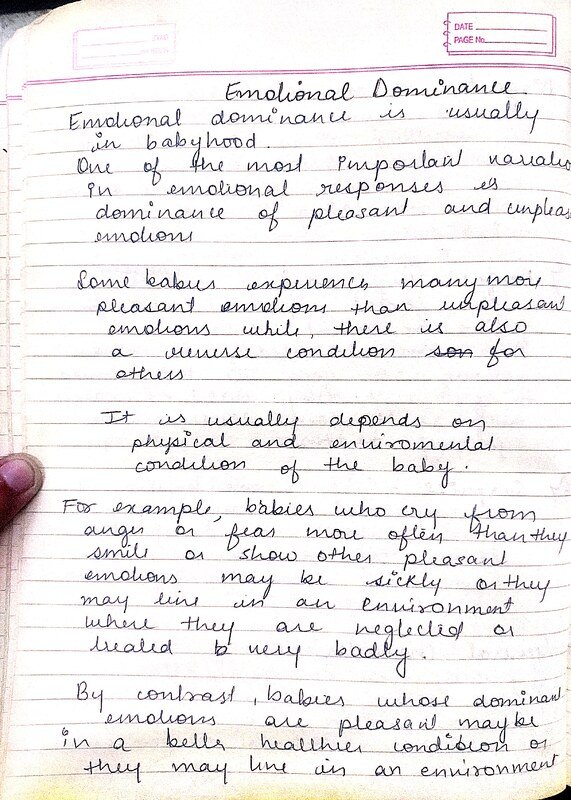 DATE
PAGE No.
Emotional Dominance
Emotional dominance is usually
in babyhood.
One of the most important
in emotional responses is
dominance of pleasant and unpleas
emotions
Some babies experience many more
pleasant emotions than unpleasant
emotions while, there is also
a reverse condition son for
others
It is usually depends on
physical and enviromental
condition of the baby.
For example, babies who cry from
anger or fear more often than they
smile or show other pleasant
emotions may be sickly or they
may live in an environment
where they are neglected or
treated b very badly.
By contrast, babies whose dominant
emotions are pleasant maybe
in a bette healthier condition or
they may live in an environment